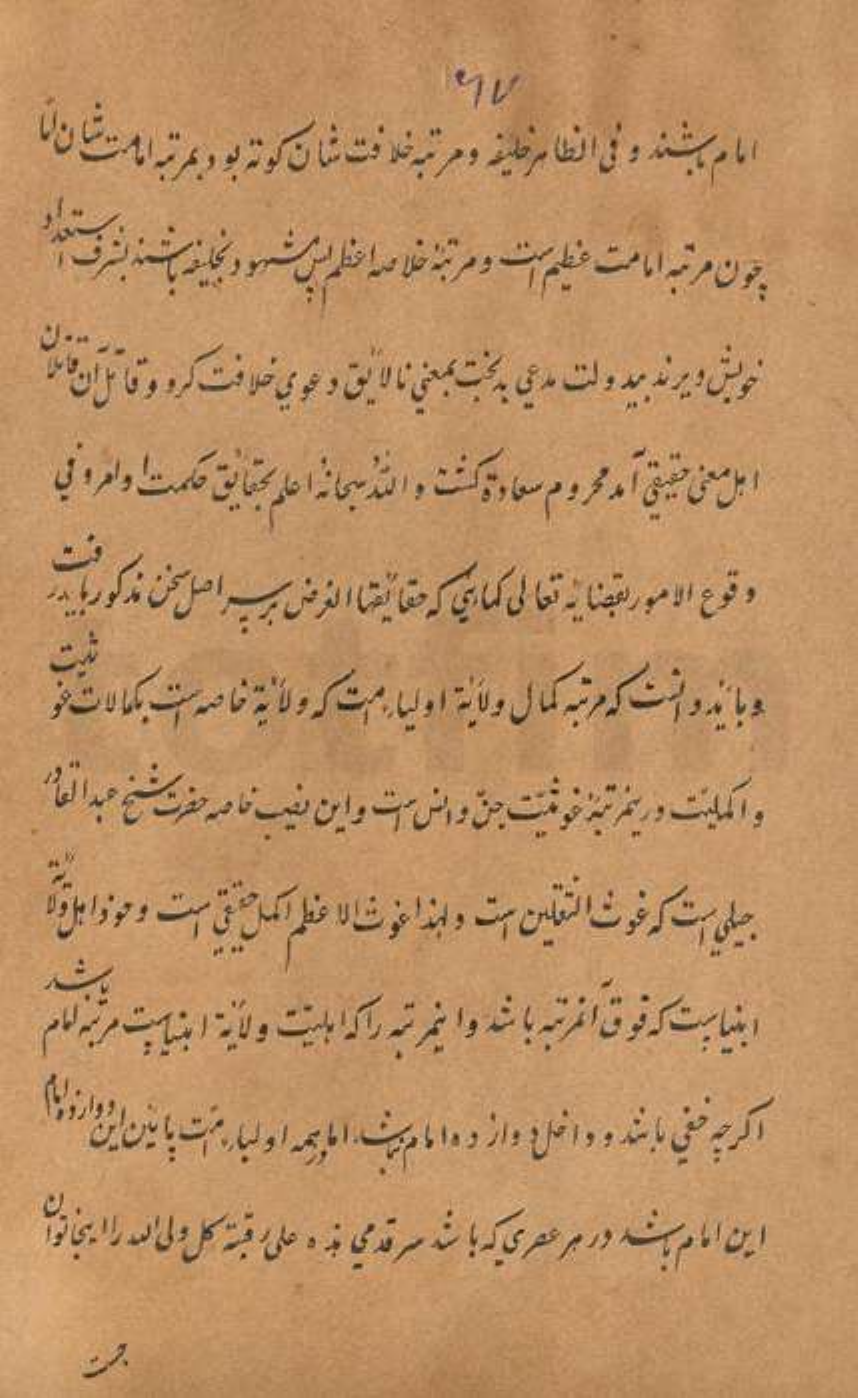 ٦٧
امام باشند و فی الظاهر خلیفه و مرتبه خلافت شان کوته بود بمرتبه امامت شان اما
چون مرتبه امامت عظیم است و مرتبۀ خلاصه اعظم پس مشهود بخلیفه باشند بشرف استعداد
خویش و یزید بیدولت مدعی بدبخت بمعنی نالایق دعوی خلافت کرد و قاتل آن قاتلان
اهل معنی حقیقی آمد محروم سعادة کشت و الله سبحانه اعلم بحقایق حکمت اوامر و فی
وقوع الامور بقضایه تعالی کماهی که حقایقها الغرض بر سر اصل سخن مذکور باید رفت
و باید دانست که مرتبه کمال ولایة اولیاء امت که ولایة خاصه است بکمالات غوثیت
و اکملیت درینمرتبۀ غوثیت جن و انس است و این نصیب خاصه حضرت شیخ عبدالقادر
جیلی است که غوث الثقلین است و لهذا غوث الاعظم اکمل حقیقی است و خود اهل ولایة
انبیاست که فوق آنمرتبه باشد و اینمرتبه را که اهلیت ولایة انبیاست مرتبه امام باشد
اکرچه خفی باشد و داخل دوازده امام نباشد اما همه اولیاء امت پائین این دوازده امام
این امام باشد در هر عصری که باشد سر قدمی هذه علی رقبة کل ولی الله را اینجا توان
جست